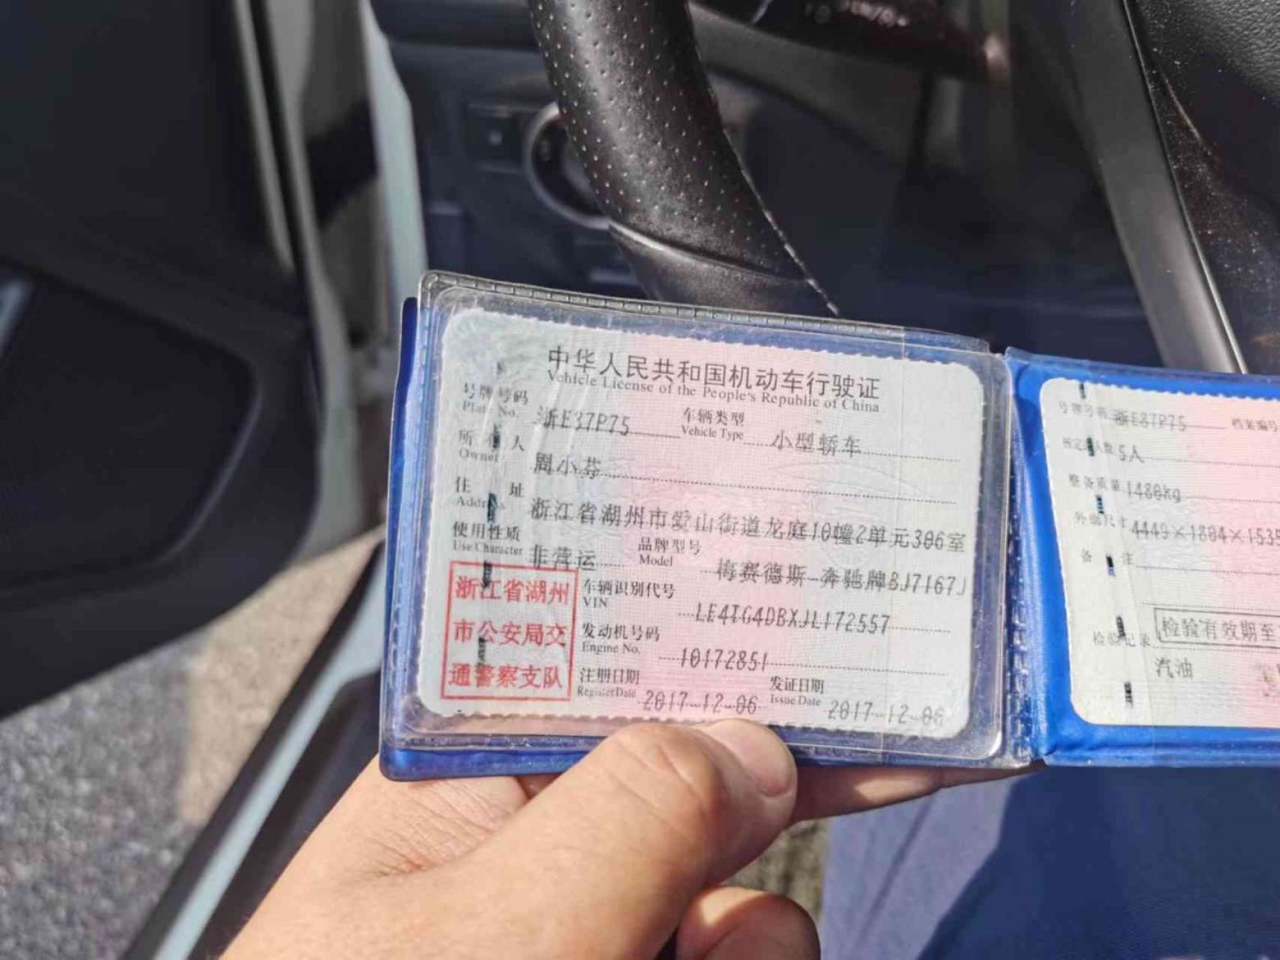 中华人民共和国机动车行驶证
Vehicle License of the People's Republic of China
号牌号码 浙E37P75 车辆类型 小型轿车
Plate No. Vehicle Type
所有人 周小芬
Owner
住址 浙江省湖州市爱山街道龙庭10幢2单元306室
Address
使用性质 非营运 品牌型号 梅赛德斯-奔驰牌BJ7167J
Use Character Model
浙江省湖州
市公安局交
通警察支队
车辆识别代号 LE4TG4DBXJL172557
VIN
发动机号码 10172851
Engine No.
注册日期 2017-12-06 发证日期 2017-12-06
Register Date Issue Date
号牌号码 浙E37P75 档案编号
核定人数 5人
整备质量 1480kg
外廓尺寸 4449×1804×1535
备注
检验有效期至
检验记录
汽油